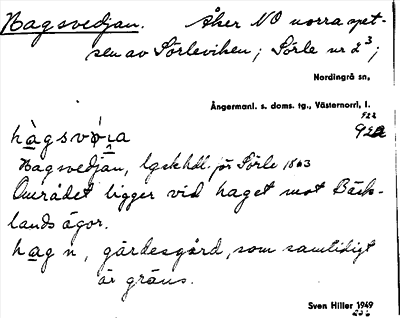 Hagsvedjan. Åker NO norra spet-
sen av Sörleviken; Sörle nr 2³;
Nordingrå sn,
Ångermanl. s. doms. tg., Västernorrl. l.
hàgsvø̂ra
Hagsvedjan, lgskhdl. för Sörle 1863
Området ligger vid haget mot Bäck-
lands ägor.
hag n, gärdesgård, som samtidigt
är gräns.
Sven Hiller 1949